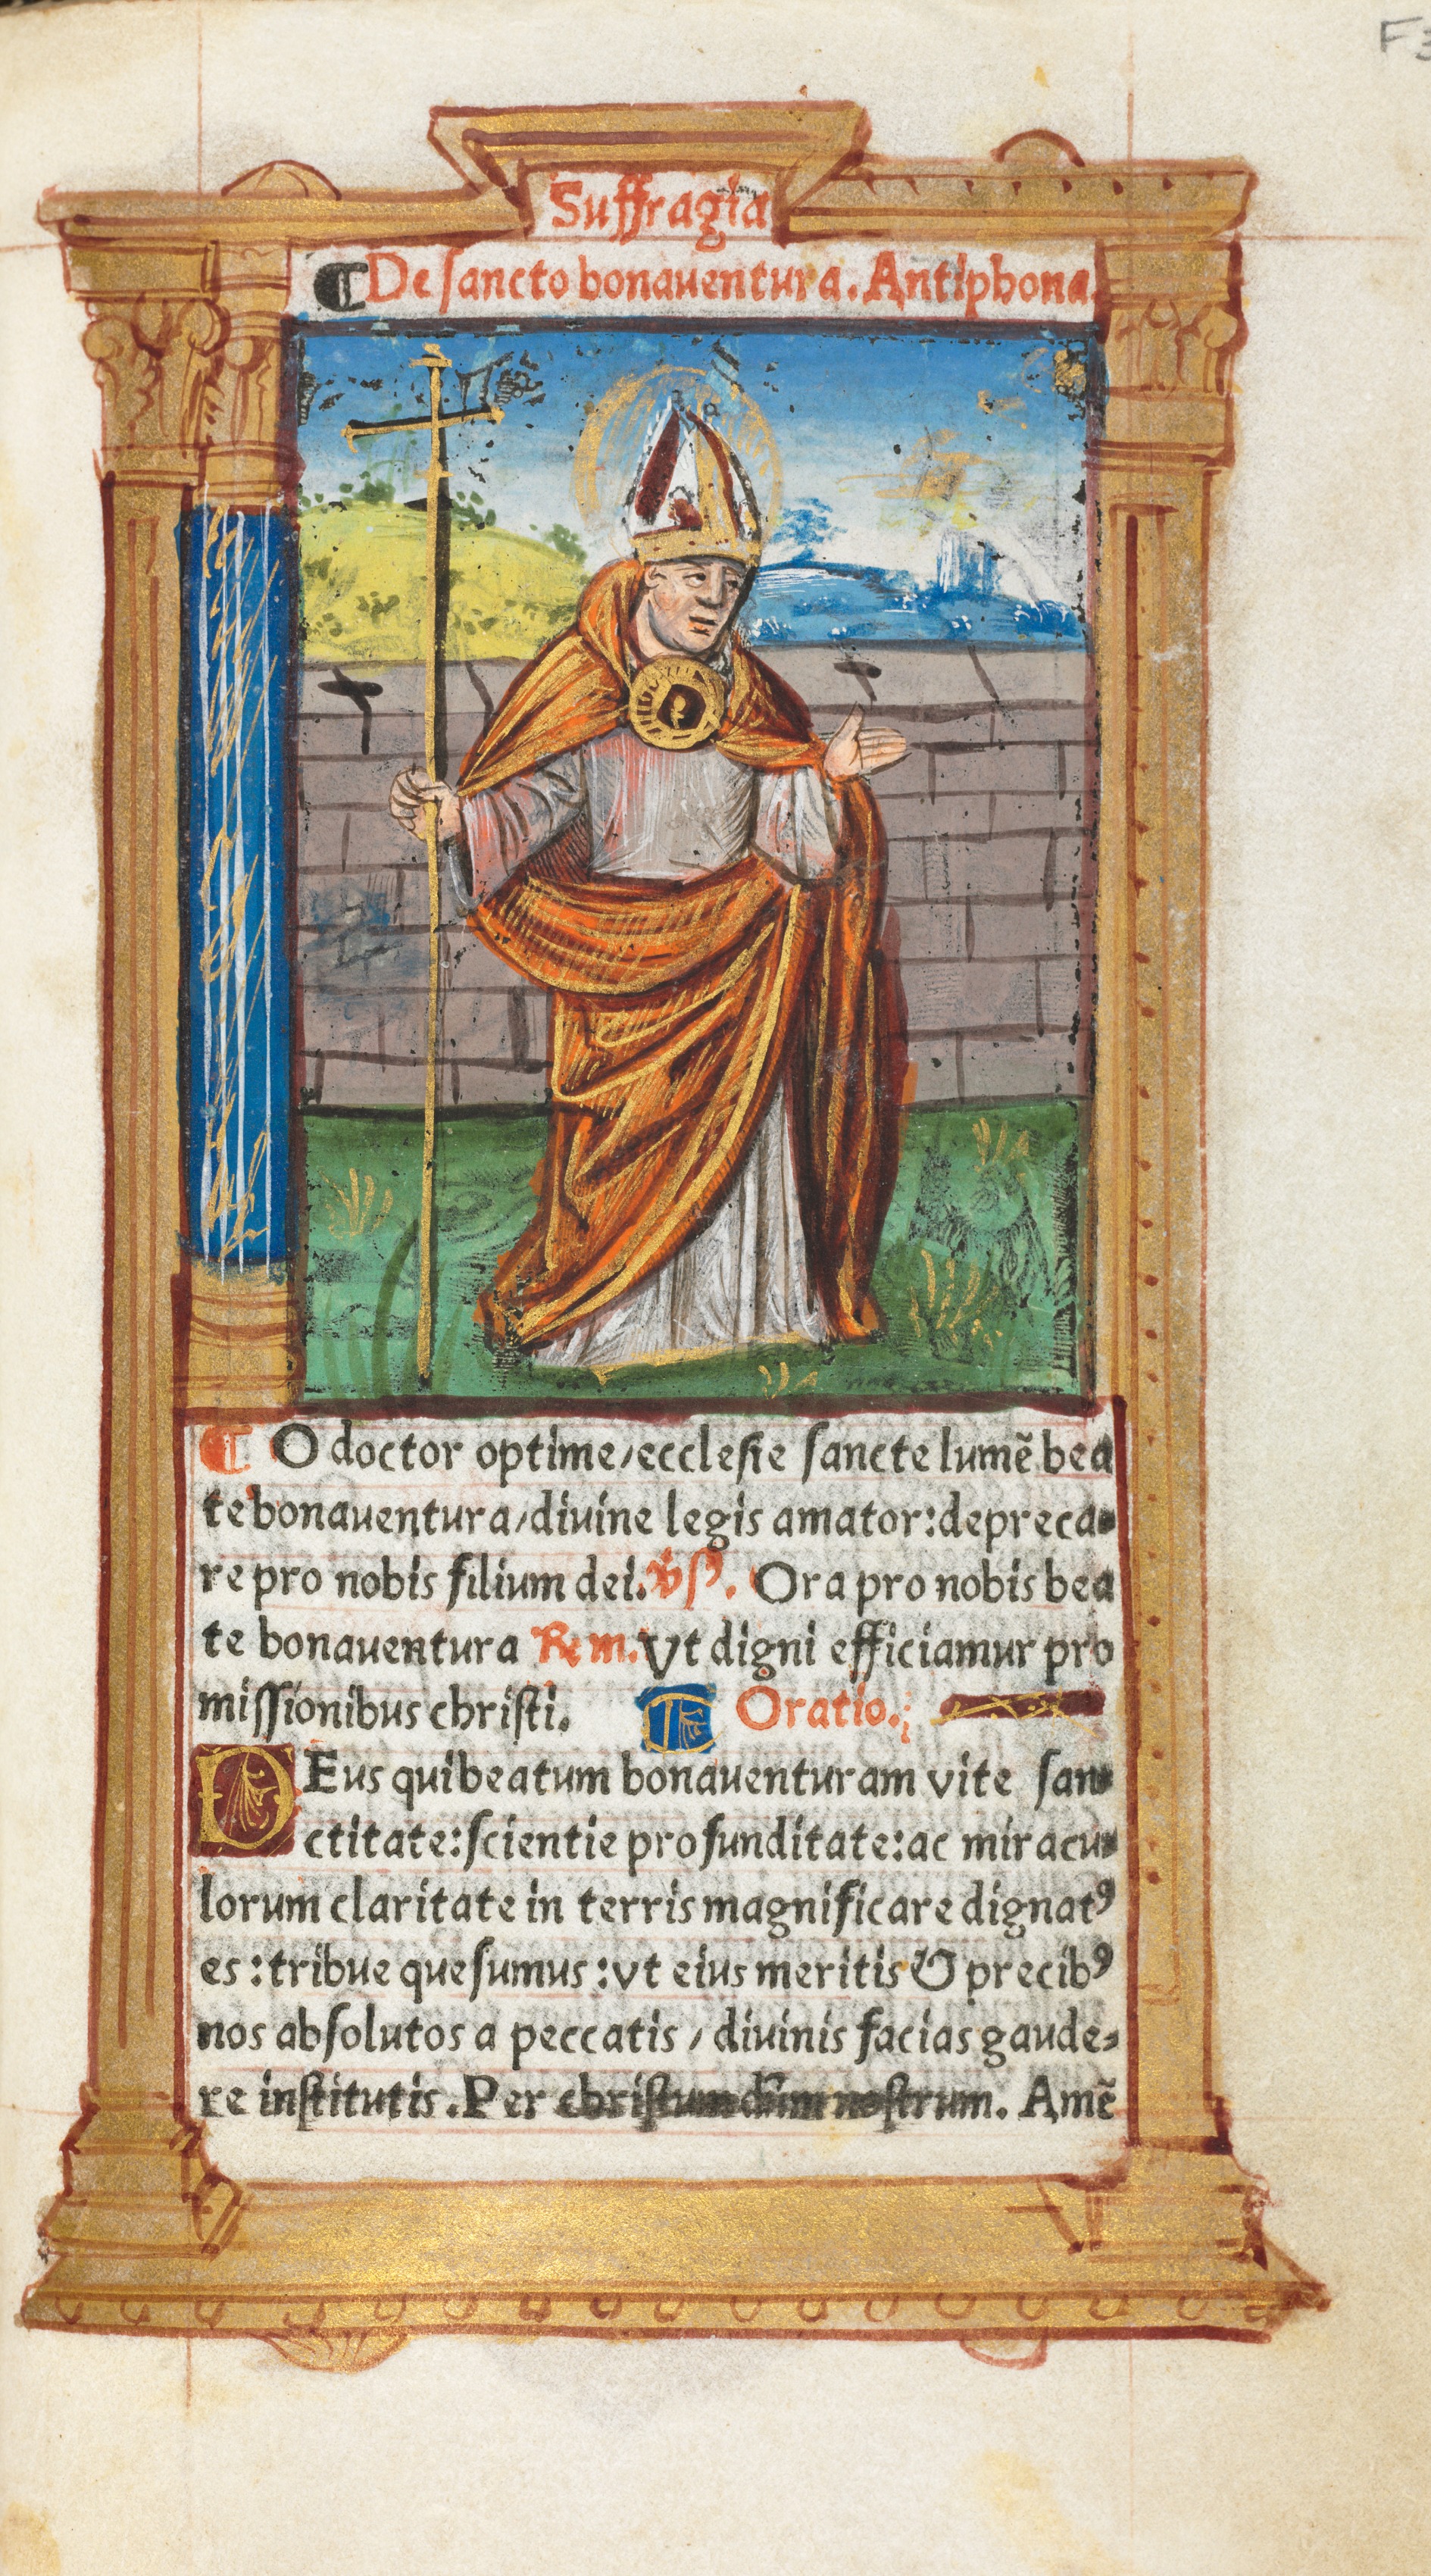 F3
Suffragia
¶ De ſancto bonauentura. Antiphona.
¶ O doctor optime/eccleſie ſancte lumē bea
te bonauentura/diuine legis amator:depreca-
re pro nobis filium dei. Vſ. Ora pro nobis bea
te bonauentura Rm. Vt digni efficiamur pro
miſſionibus chriſti. ¶ Oratio.
DEus qui beatum bonauenturam vite ſan-
ctitate:ſcientie profunditate:ac miracu-
lorum claritate in terris magnificare dignatꝰ
es:tribue queſumus:vt eius meritis & precibꝰ
nos abſolutos a peccatis / diuinis facias gaude-
re inſtitutis. Per chriſtum dñm noſtrum. Amē